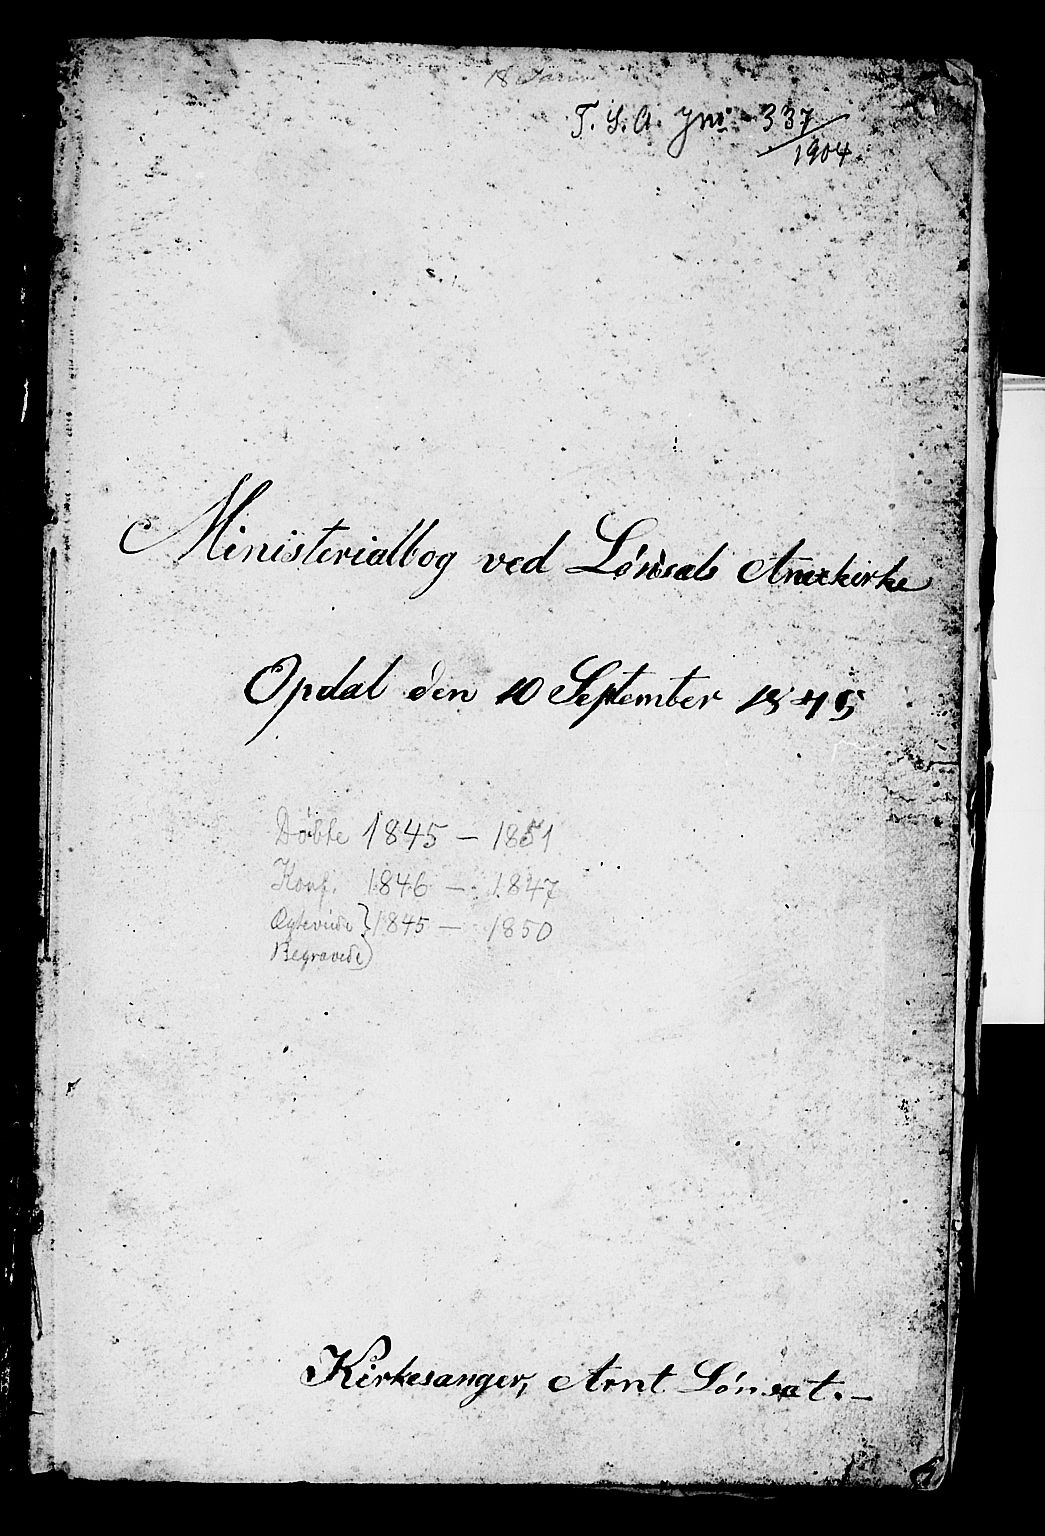 T. S. A. Jnr 337/1904
Ministerialbog ved Lønsets Anexkirke
Opdal den 10 September 1845
Døbte 1845 - 1851
Konf. 1846 - 1847
Ægteviede } 1845 - 1850
Begravede )
Kirkesanger, Arnt Lønset. -